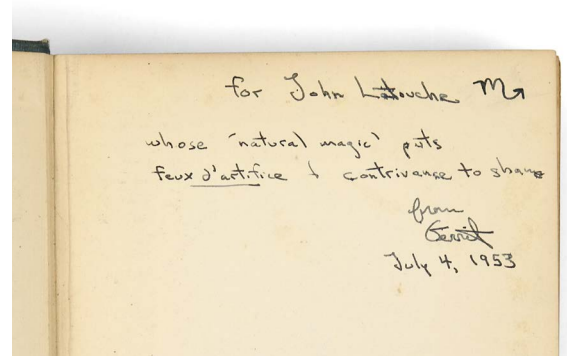 for John Latouche ♏
whose 'natural magic' puts
feux d'artifice & contrivance to shame
from
Gerrit
July 4, 1953